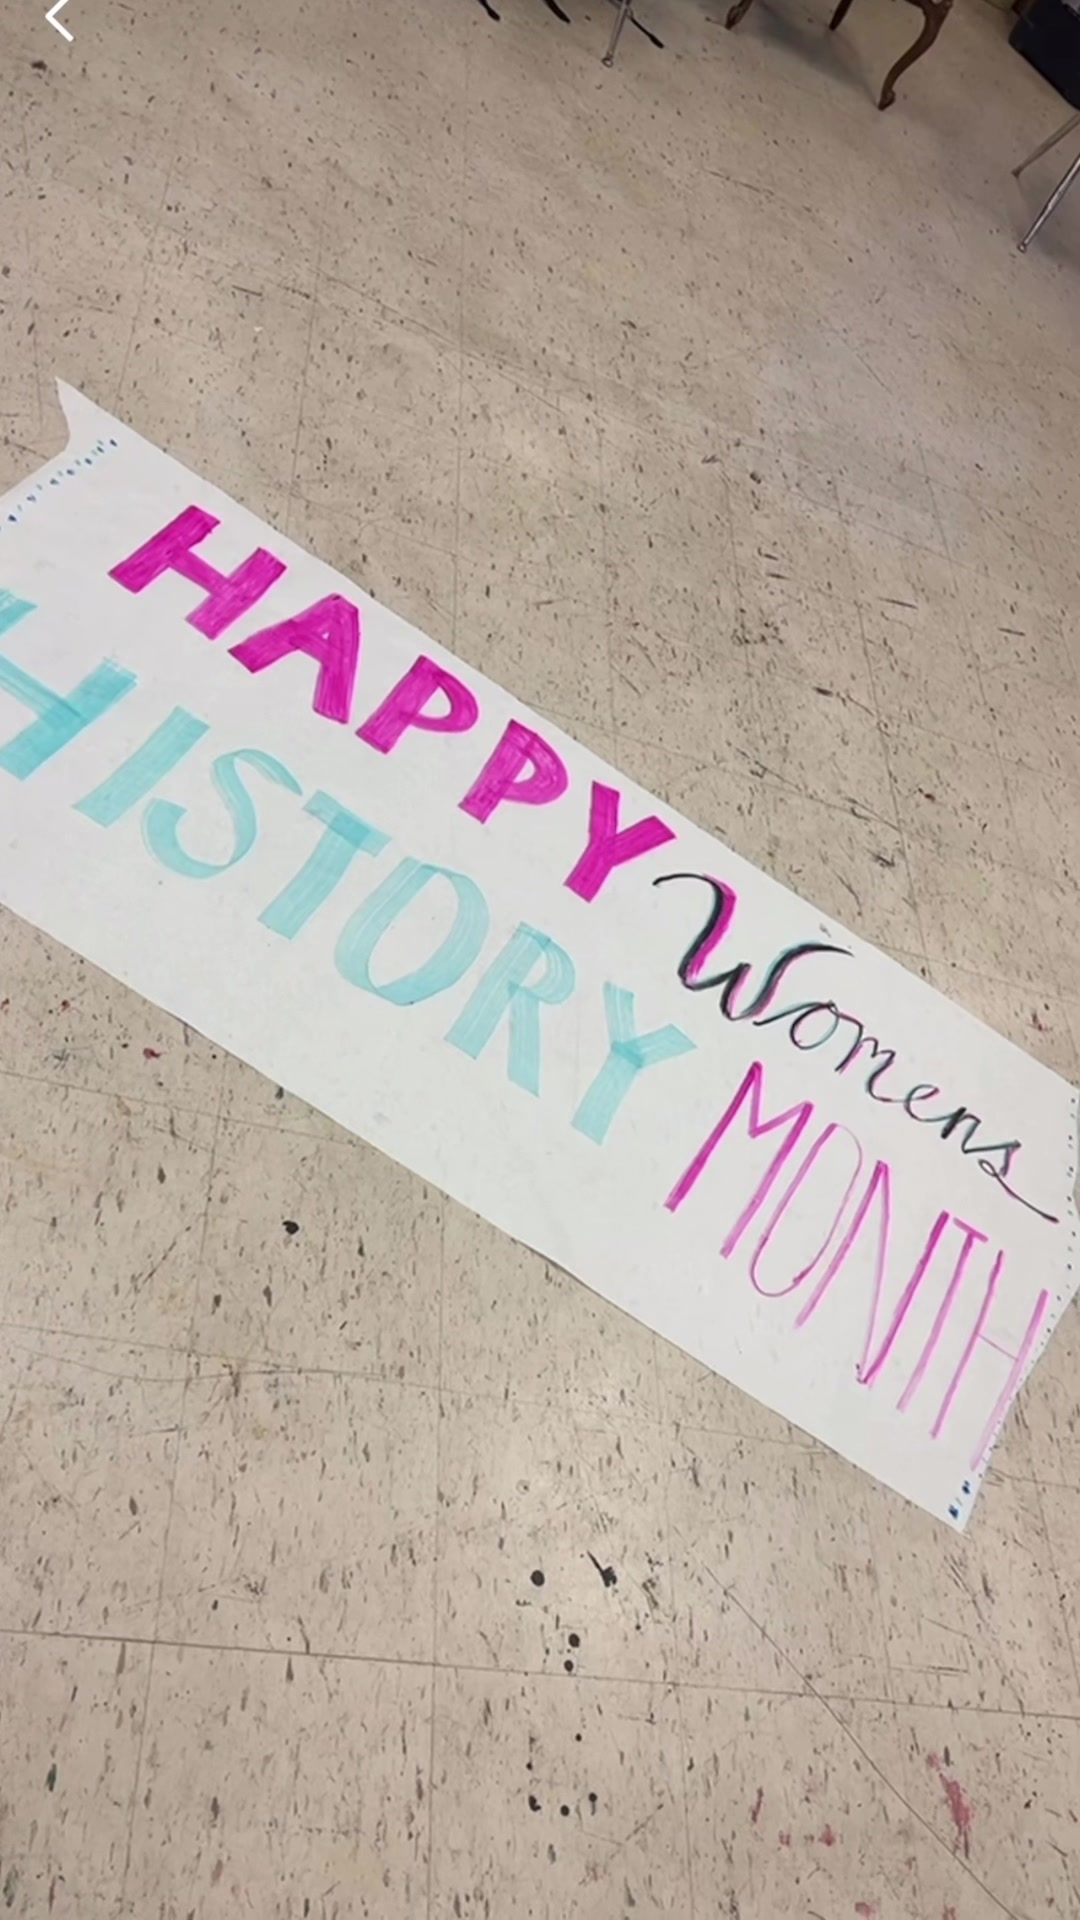 HAPPY Womens
HISTORY MONTH